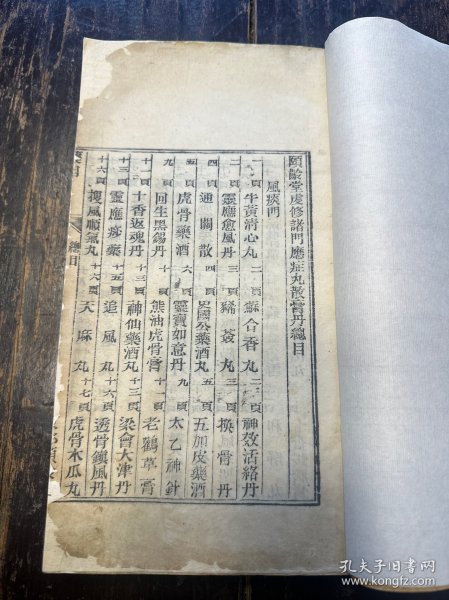 頤齡堂虔修諸門應症丸散膏丹總目
風痰門
一頁牛黃清心丸 二頁蘇合香丸 二頁神效活絡丹
二頁靈應愈風丹 三頁豨薟丸 三頁換骨丹
四頁通關散 四頁史國公藥酒 五頁五加皮藥酒
五頁虎骨藥酒 六頁靈寶如意丹 九頁太乙神針
九頁回生黑錫丹 熊油虎骨膏 老鸛草膏
十一頁十香返魂丹 十三頁神仙藥酒丸 十三頁梁會大津丹
十三頁靈應痧藥 十五頁追風丸 十六頁透骨鎮風丹
十六頁搜風順氣丸 十六頁天麻丸 十七頁虎骨木瓜丸
總目
孔夫子旧书网
https://book.kongfz.com/